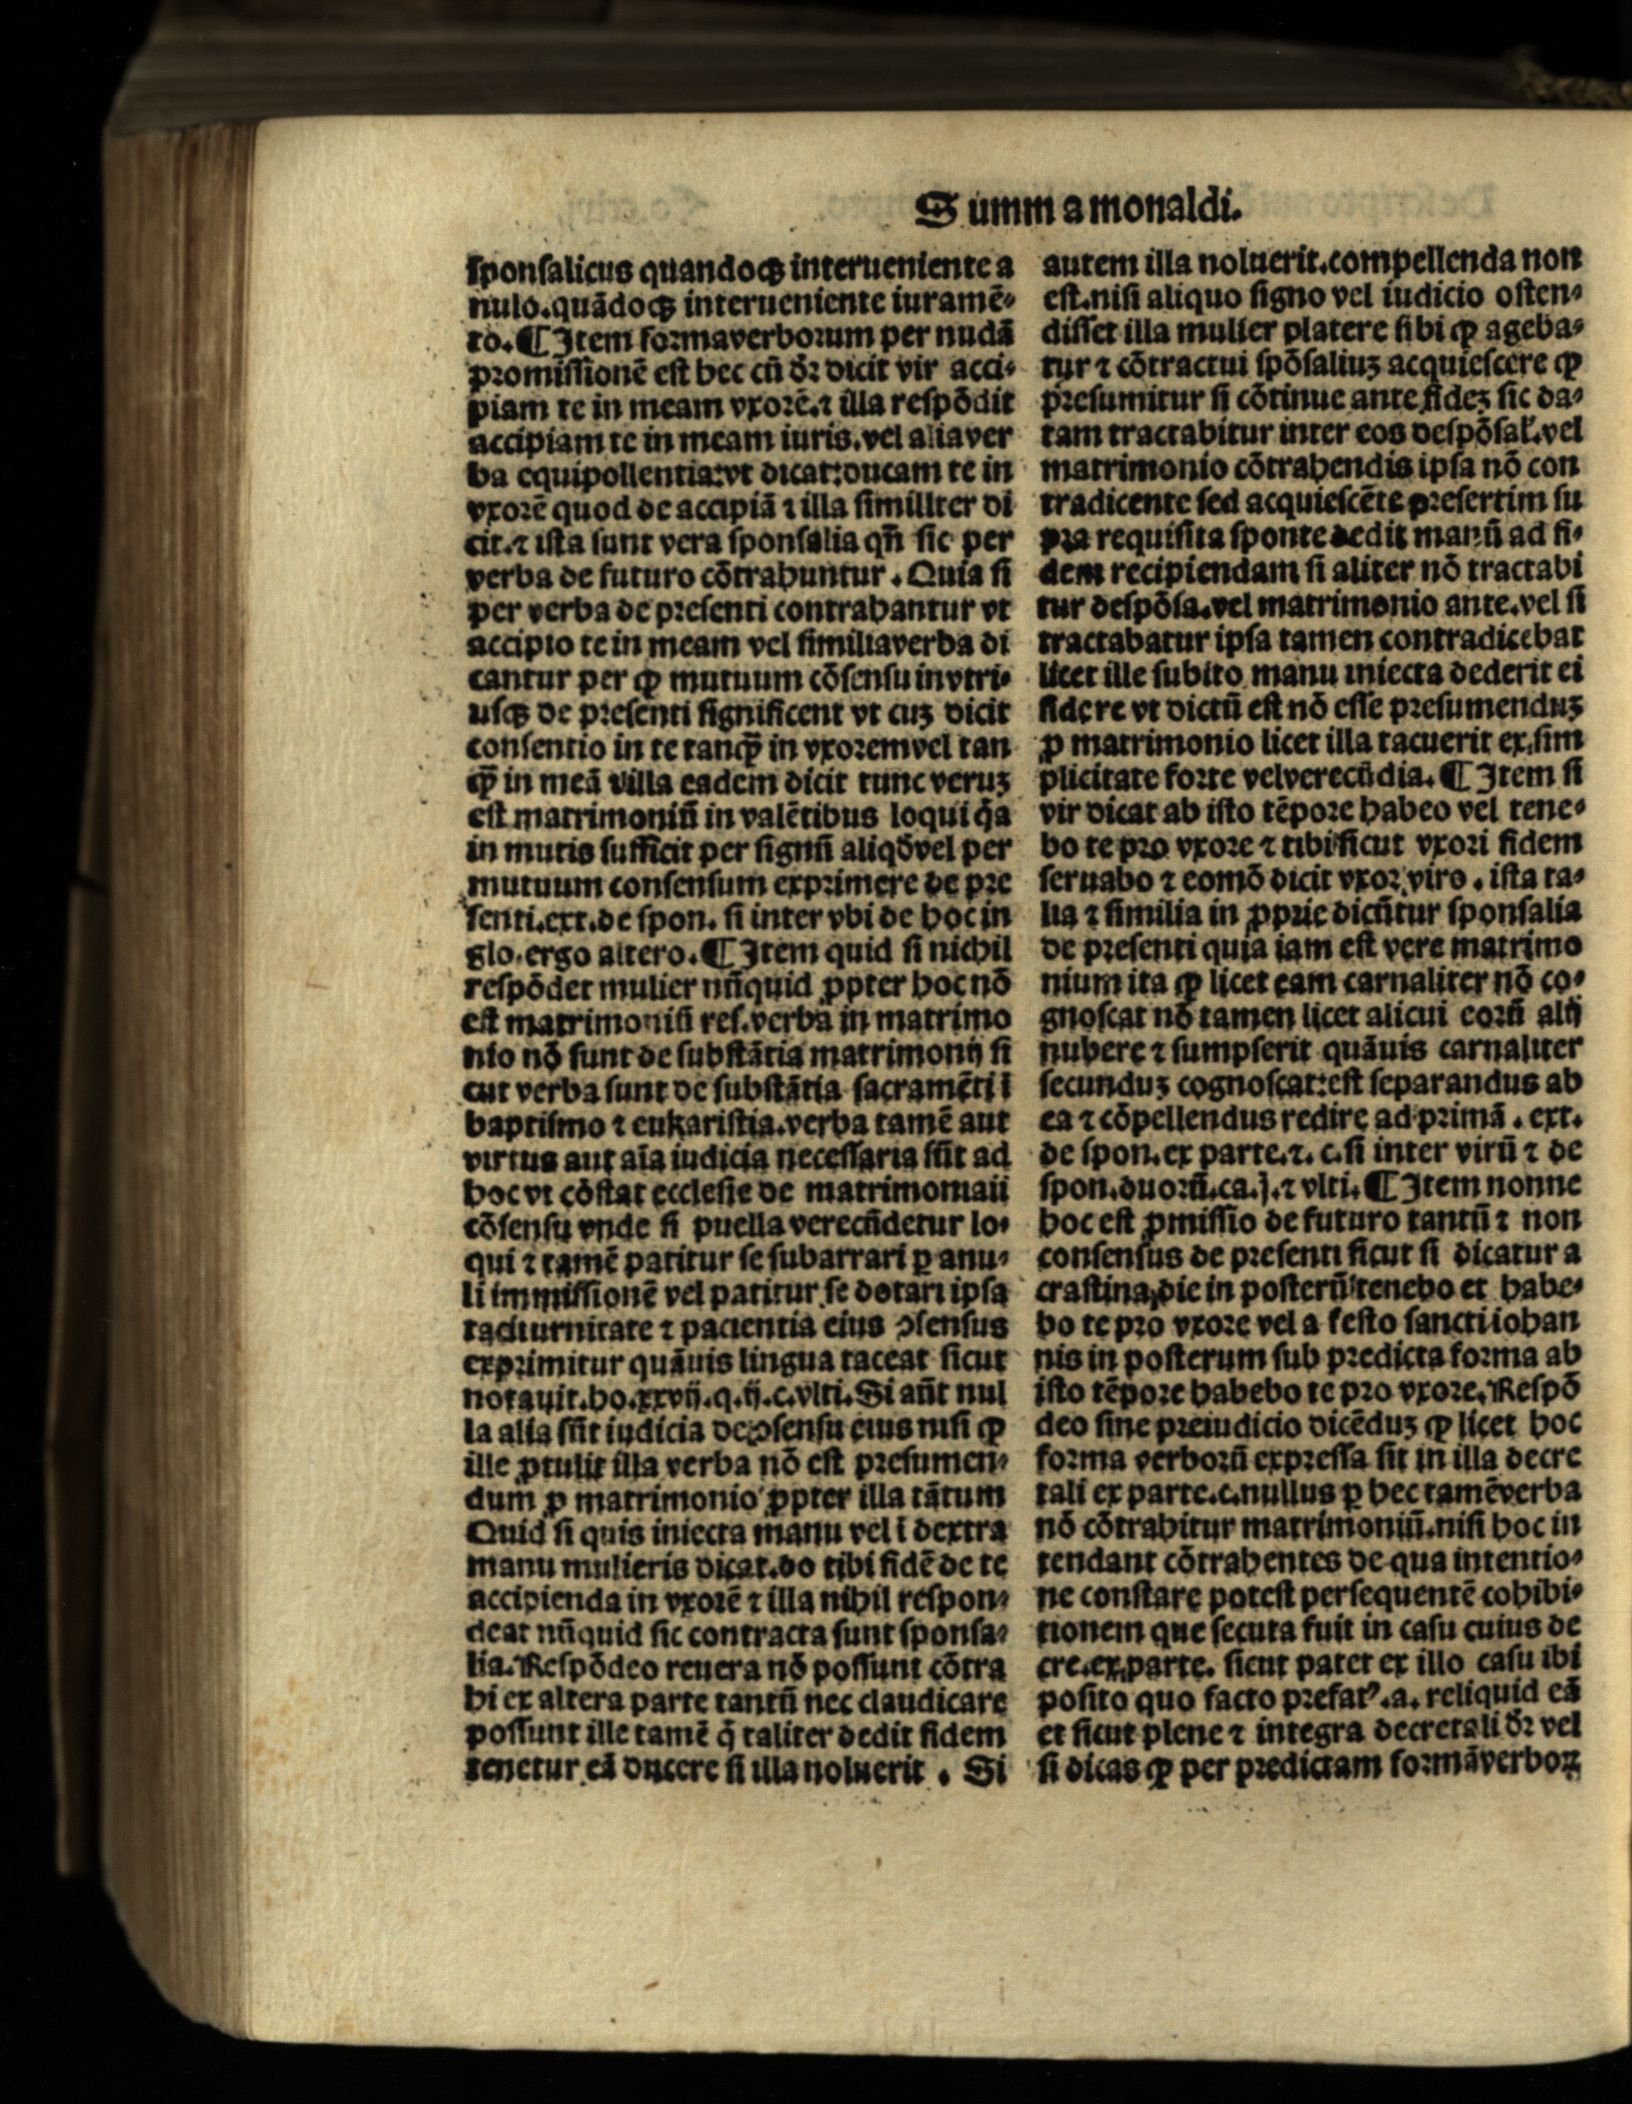 Summa monaldi.
sponsalicus quandoqꝫ interueniente a
nulo.quãdoqꝫ interueniente iuramẽ⸗
to.¶Item formaverborum per nudã
promissionẽ est hec cũ dr̃ dicit vir acci⸗
piam te in meam vxorẽ.⁊ illa respõdit
accipiam te in meam iuris.vel aliaver
ba equipollentia:vt dicat:ducam te in
vxorẽ quod de accipiã ⁊ illa simillter di
cit.⁊ ista sunt vera sponsalia qñ sic per
verba de futuro cõtrahuntur. Quia si
per verba de presenti contrahantur vt
accipio te in meam vel similiaverba di
cantur per ꝙ mutuum cõsensu invtri⸗
usqꝫ de presenti significent vt cuꝫ dicit
consentio in te tanꝙ̃ in vxoremvel tan
ꝙ̃ in meã villa eadem dicit tunc veruꝫ
est matrimoniũ in valẽtibus loqui q̃a
in mutis sufficit per signũ aliqd̃vel per
mutuum consensum exprimere de pre
senti.ext.de spon. si inter vbi de hoc in
glo.ergo altero.¶Item quid si nichil
respõdet mulier nũquid ꝓpter hoc nõ
est matrimoniũ res.verba in matrimo
nio nõ sunt de substãtia matrimonij si
cut verba sunt de substãtia sacramẽti ĩ
baptismo ⁊ eukaristia.verba tamẽ aut
virtus aut aĩa iudicia necessaria sũt ad
hoc vt cõstat ecclesie de matrimoniaii
cõsensu vnde si puella verecũdetur lo⸗
qui ⁊ tamẽ patitur se subarrari ꝑ anu⸗
li immissionẽ vel patitur se dotari ipsa
taciturnitate ⁊ pacientia eius ↄsensus
exprimitur quãuis lingua taceat sicut
notauit.ho.xxvij.q.ij.c.vlti.Si aũt nul
la alia sũt iudicia de ↄsensu eius nisi ꝙ
ille ꝓtulit illa verba nõ est presumen⸗
dum ꝓ matrimonio ꝓpter illa tãtum
Quid si quis iniecta manu vel ĩ dextra
manu mulieris dicat.do tibi fidẽ de te
accipienda in vxorẽ ⁊ illa nihil respon⸗
deat nũquid sic contracta sunt sponsa⸗
lia.Respõdeo reuera nõ possunt cõtra
hi ex altera parte tantũ nec claudicare
possunt ille tamẽ q̃ taliter dedit fidem
tenetur eã ducere si illa noluerit . Si
autem illa noluerit.compellenda non
est.nisi aliquo signo vel iudicio osten⸗
disset illa mulier platere sibi ꝙ ageba⸗
tur ⁊ cõtractui spõsaliuꝫ acquiescere ꝙ
presumitur si cõtinue ante fideꝫ sic da⸗
tam tractabitur inter eos despõsal̃.vel
matrimonio cõtrahendis ipsa nõ con
tradicente sed acquiescẽte presertim su
pra requisita sponte dedit manũ ad fi⸗
dem recipiendam si aliter nõ tractabi
tur despõsa.vel matrimonio ante.vel si
tractabatur ipsa tamen contradicebat
licet ille subito manu iniecta dederit ei
fidere vt dictũ est nõ esse presumenduꝫ
ꝓ matrimonio licet illa tacuerit ex sim
plicitate forte velverecũdia.¶Item si
vir dicat ab isto tẽpore habeo vel tene⸗
bo te pro vxore ⁊ tibi sicut vxori fidem
seruabo ⁊ eomõ dicit vxor viro . ista ta⸗
lia ⁊ similia in ꝓprie dicũtur sponsalia
de presenti quia iam est vere matrimo
nium ita ꝙ licet eam carnaliter nõ co⸗
gnoscat nõ tamen licet alicui eorũ alij
nubere ⁊ sumpserit quãuis carnaliter
secunduꝫ cognoscat:est separandus ab
ea ⁊ cõpellendus redire ad primã . ext.
de spon.ex parte.⁊. c.si inter virũ ⁊ de
spon.duorũ.ca.j.⁊ vlti.¶Item nonne
hoc est ꝓmissio de futuro tantũ ⁊ non
consensus de presenti sicut si dicatur a
crastina die in posterũ tenebo et habe⸗
bo te pro vxore vel a festo sancti iohan
nis in posterum sub predicta forma ab
isto tẽpore habebo te pro vxore.Respõ
deo sine preiudicio dicẽduꝫ ꝙ licet hoc
forma verborũ expressa sit in illa decre
tali ex parte.c.nullus ꝑ hec tamẽverba
nõ cõtrahitur matrimoniũ.nisi hoc in
tendant cõtrahentes de qua intentio⸗
ne constare potest persequentẽ cohibi⸗
tionem que secuta fuit in casu cuius de
cre.ex parte. sicut patet ex illo casu ibi
posito quo facto prefatꝰ.a. reliquid eã
et sicut plene ⁊ integra decretali dr̃ vel
si dicas ꝙ per predictam formãverboꝝ